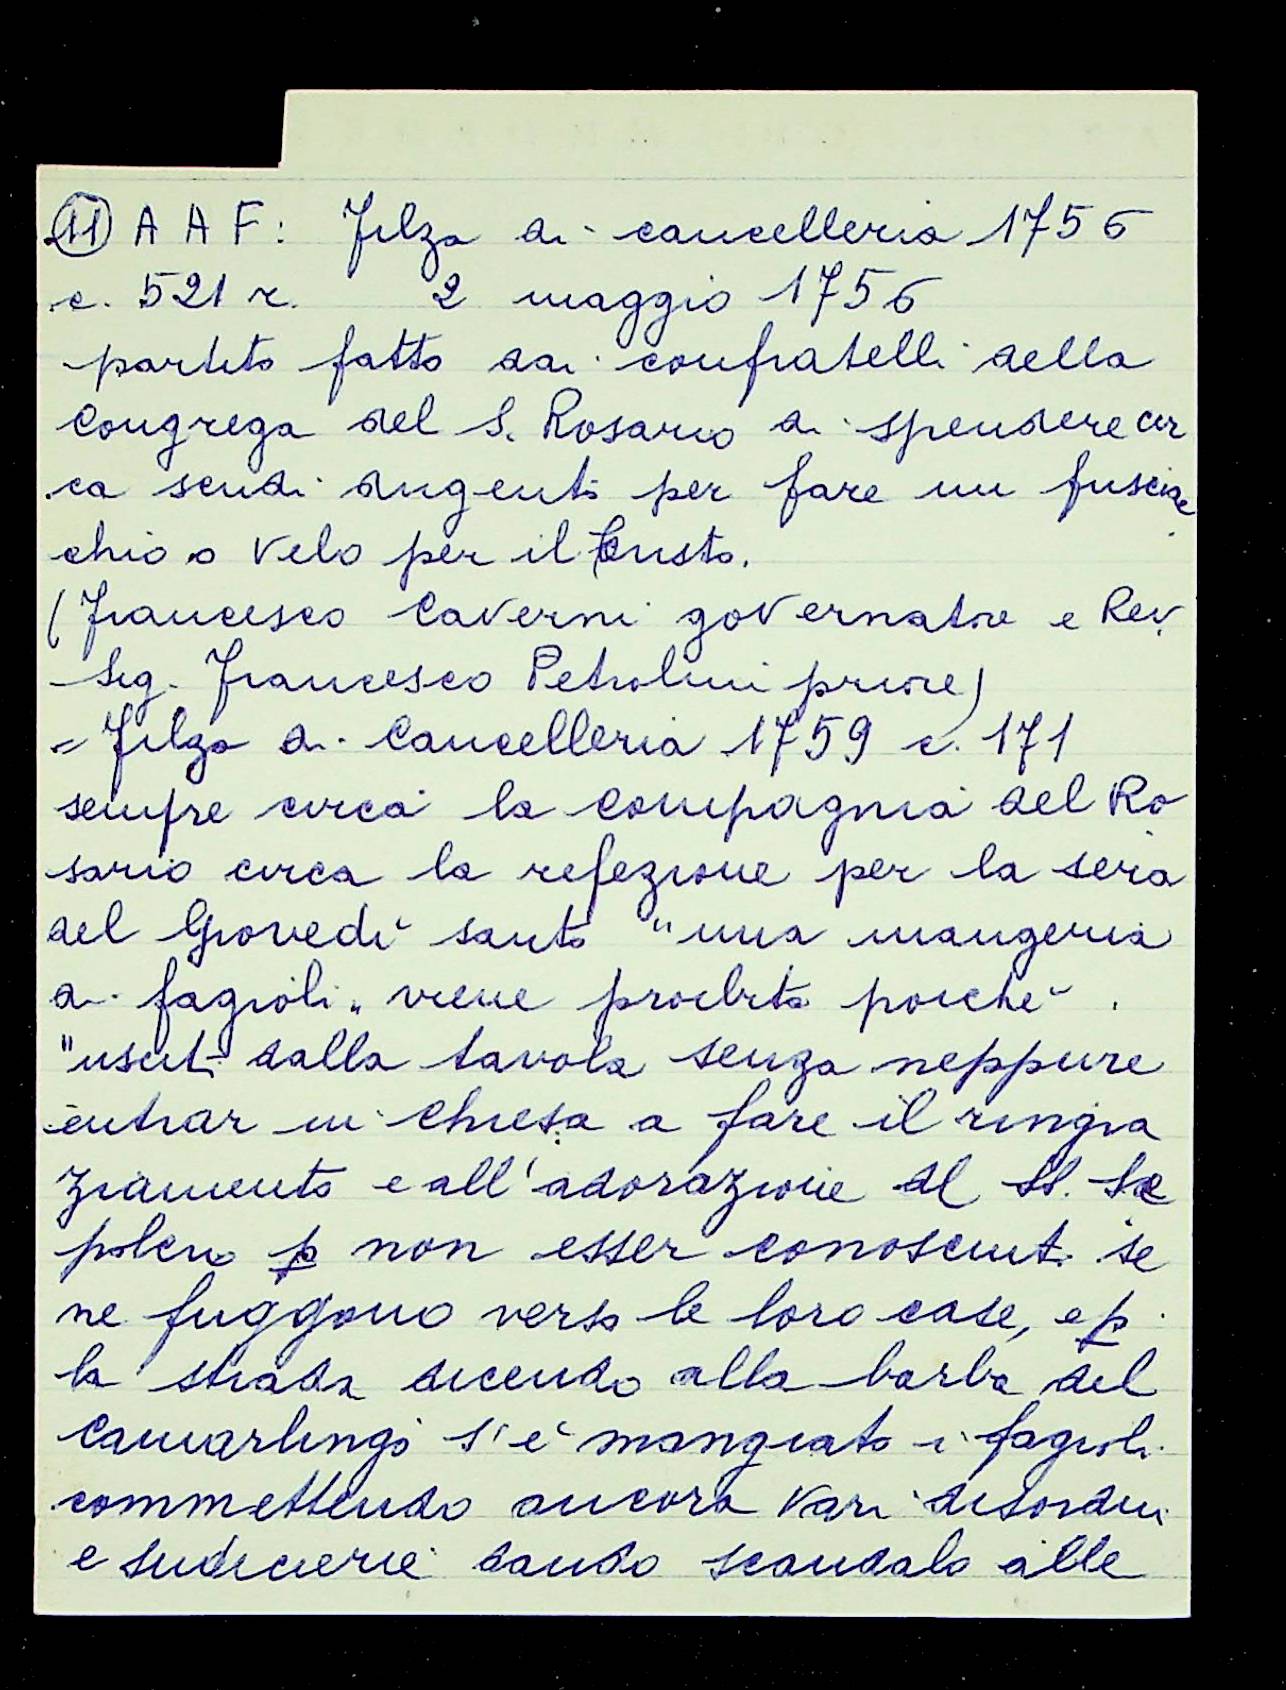 (11) A A F: Filza di cancelleria 1756
c. 521 r. 2 maggio 1756
partito fatto dai confratelli della
Congrega del S. Rosario di spendere cir
ca scudi dugento per fare un fusciac
chio o Velo per il Cristo.
(Francesco Caverni governatore e Rev.
Sig. Francesco Petrolini priore)
= Filza di Cancelleria 1759 c. 171
sempre circa la compagnia del Ro
sario circa la refezione per la sera
del Giovedì santo "una mangeria
di fagioli" viene proibita poiché
"usciti dalla tavola senza neppure
entrar in Chiesa a fare il ringra
ziamento e all'adorazione del SS. Se
polcro p non esser conosciuti se
ne fuggono verso le loro case, e p
la strada dicendo alla barba del
Camarlingo s'è mangiato i fagioli
commettendo ancora vari disordini
e sudicerie dando scandalo alle